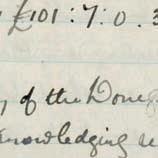 £101 : 7 : 0 . 3
of the Done
knowledging re